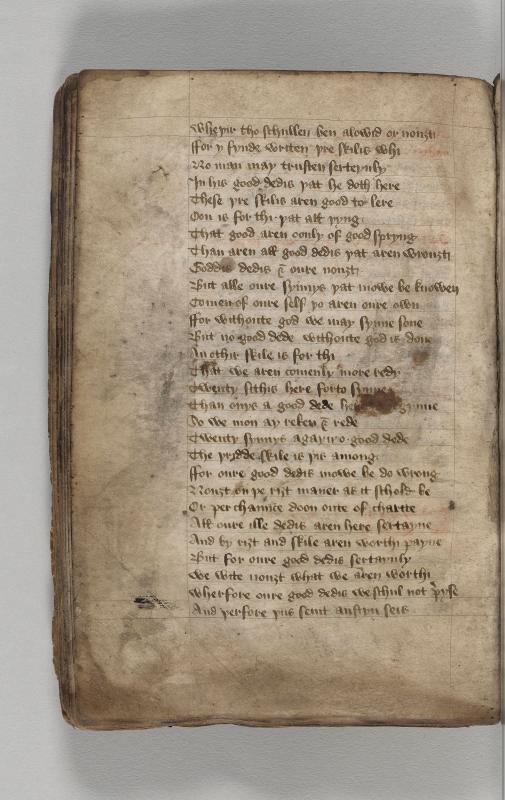 Wheþir tho schullen ben alowid or nouȝt
ffor y fynde writen þre skilis whi
No man may trusten serteynly
In his good dedis þat he doth here
These þre skilis aren good to lere
Oon is for thi þat all þyng
That good aren oonly of god spryng
Than aren all good dedis þat aren wrouȝt
Goddis dedis & oure nouȝt
But alle oure synnys þat mowe be knowen
Comen of oure self þo aren oure own
ffor withoute god we may synne sone
But no good dede withoute god is done
An othir skile is for thi
That we aren comenly more redy
Twenty sithis here forto synne
Than onys a good dede gynne
So we mon ay reken & rede
Twenty synnys agayn o good dede
The þridde skile is þis among
ffor oure good dedis mowe be do wrong
Nouȝt on þe riȝt maner as it schold be
Or perchaunce doon oute of charite
All oure ille dedis aren here sertayne
And by riȝt and skile aren worthi payne
But for oure good dedis sertaynly
We wite nouȝt what we aren worthi
Wherfore oure good dedis we schul not pryse
And þerfore þus seint austyn seis